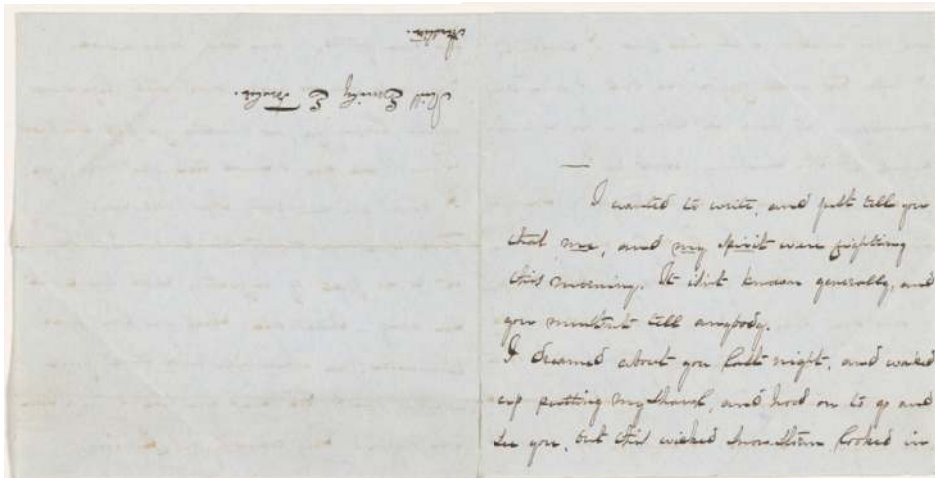 Austin.
Miss Emily E Fowler.
I wanted to write, and just tell you
that me, and my spirit were fighting
this morning. It isn't known generally, and
you mustn't tell anybody.
I dreamed about you last night, and waked
up putting my shawl, and hood on to go and
see you, but this wicked snow-storm looked in